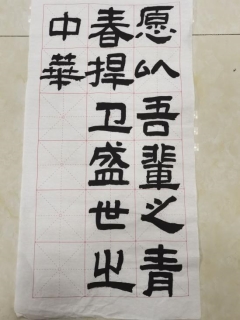 愿以吾輩之青
春捍卫盛世之
中華